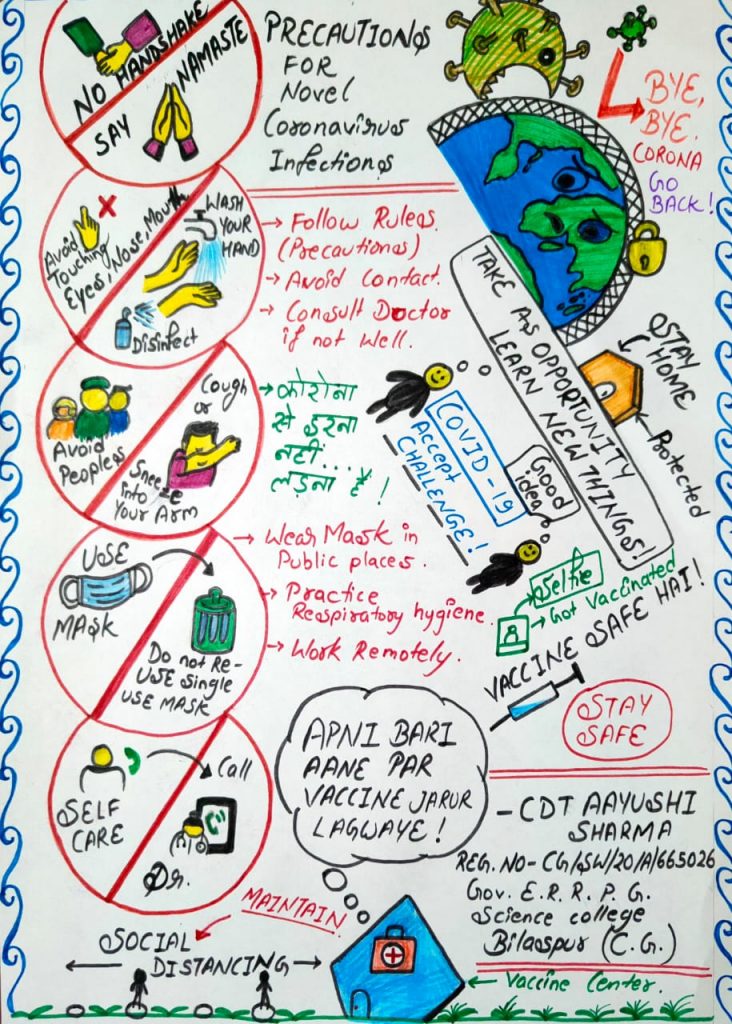 NO HANDSHAKE
SAY NAMASTE
PRECAUTIONS
FOR
Novel
Coronavirus
Infections
BYE,
BYE.
CORONA
GO
BACK!
Avoid
Touching
Eyes, Nose, Mouth
WASH
YOUR
HAND
Disinfect
→ Follow Rules.
(Precautions)
→ Avoid Contact.
→ Consult Doctor
if not Well.
TAKE AS OPPORTUNITY
LEARN NEW THINGS!
STAY
HOME
Protected
Avoid
Peoples
Cough
or
Sneeze
into
Your Arm
→ कोरोना
से डरना
नहीं...
लड़ना है!
COVID-19
Accept
CHALLENGE!
Good
idea
USE
MASK
Do not Re-
USE Single
USE MASK
→ Wear Mask in
Public places.
→ Practice
Respiratory hygiene.
→ Work Remotely.
Selfie
→ Got Vaccinated
VACCINE SAFE HAI!
STAY
SAFE
SELF
CARE
Call
Dr.
APNI BARI
AANE PAR
VACCINE JARUR
LAGWAYE!
- CDT AAYUSHI
SHARMA
REG. NO- CG/SW/20/A/665026
Gov. E. R. R. P. G.
Science college
Bilaspur (C.G.)
MAINTAIN
SOCIAL
DISTANCING
← Vaccine Center.